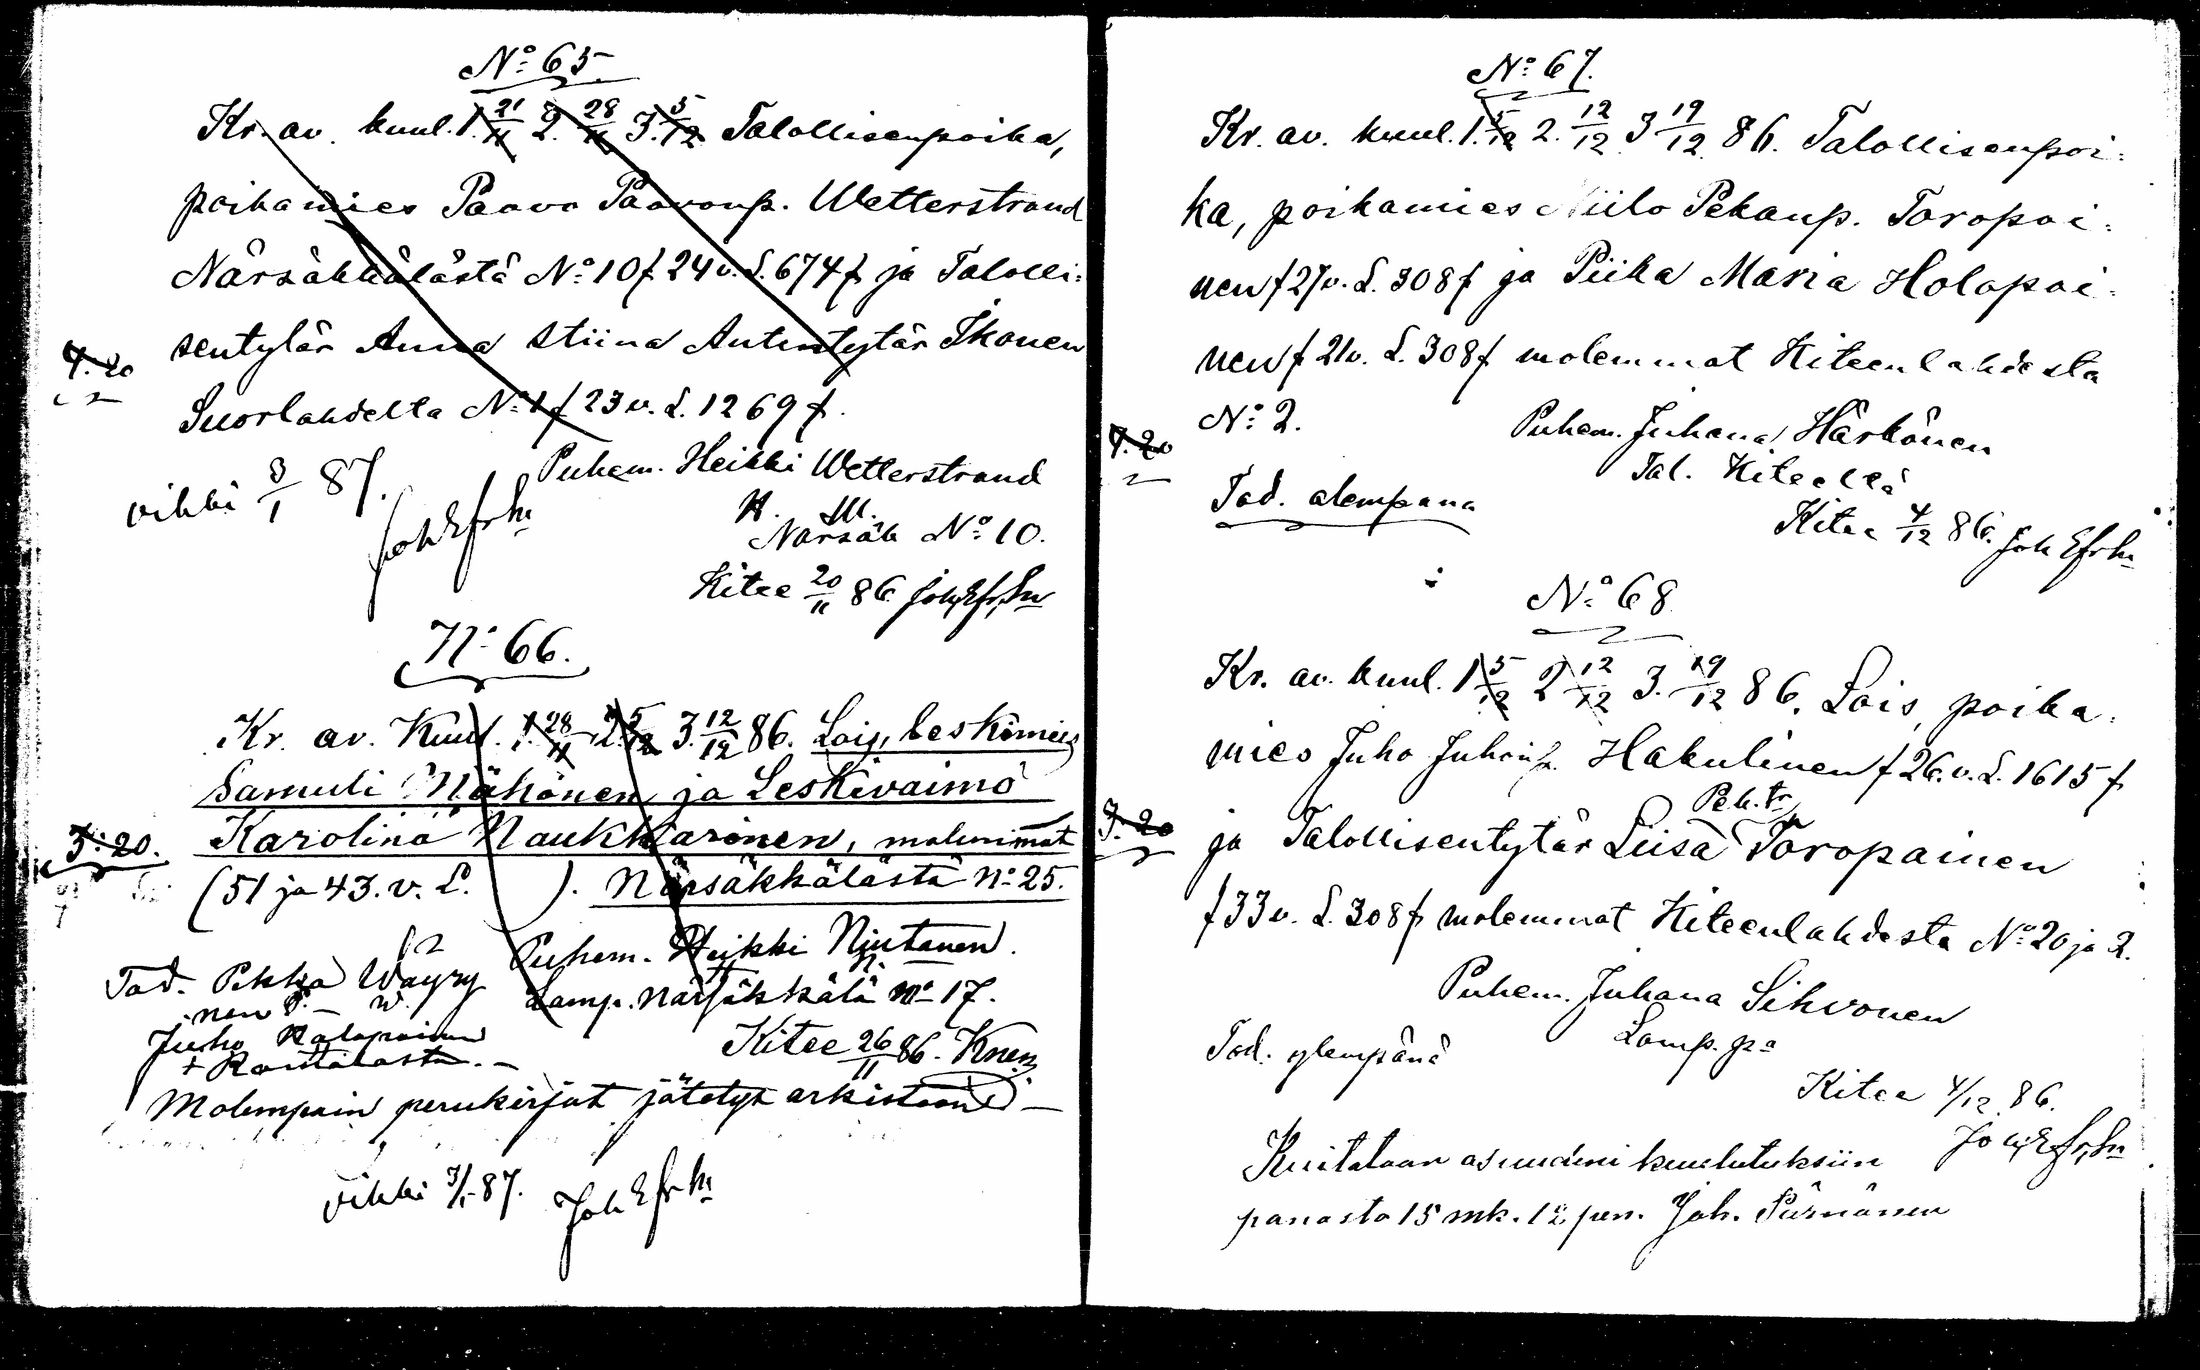 No 65
Kr. av. kuul. 1. 21/11 2. 28/11 3. 5/12 Talollisenpoika,
poikamies Paavo Paavonp. Wetterstrand
Närsäkkälästä No 10 f 24 v. L. 674 f ja Talolli-
sentytär Anna Stiina Antintytär Ikonen
4.20
Suorlahdelta No 1 f 23 v. L. 1269 f.
vihki 3/1 87.
Puhem. Heikki Wetterstrand
H. W.
Närsäk No 10.
Kitee 20/11 86
No 66.
Kr. av. Kuul. 1. 28/11 2. 5/12 3. 12/12 86. Lois, leskimies
Samuli Mähönen ja Leskivaimo
Karolina Naukkarinen, molemmat
3:20.
(51 ja 43. v. L. ). Närsäkkälästä No 25.
Puhem. Heikki Njutanen.
Lamp. Närsäkkälä No 17.
Tod. Pekka Wäyry
nen P. - W.
Juho
+ Rantalasta. -
Kitee 26/11 86. Knen
Molempain perukirjat jätetyt arkistoon
vihki 3/1 87.
No 67.
Kr. av. kuul. 1. 5/12 2. 12/12 3 19/12 86. Talollisenpoi-
ka, poikamies Niilo Pekanp. Toropai-
nen f 27 v. L. 308 f ja Piika Maria Holopai-
nen f 21 v. L. 308 f molemmat Kiteenlahdesta
No 2.
4.20
Puhem. Juhana Härkönen
Tal. Kiteeltä
Tod. alempana
Kitee 4/12 86.
No 68
Kr. av. kuul. 1 5/12 2 12/12 3. 19/12 86. Lois, poika-
mies Juho Juhonp. Hakulinen f 26. v. L. 1615 f
Pek. tr
3.20
ja Talollisentytär Liisa Toropainen
f 33 v. L. 308 f molemmat Kiteenlahdesta No 20 ja 2.
Puhem. Juhana Sihvonen
Lamp. pa
Tod. ylempänä
Kitee 4/12 86.
Kuitataan asuudini kuulutuksiin
panosta 15 mk. 12 pen. Joh. Pärnänen